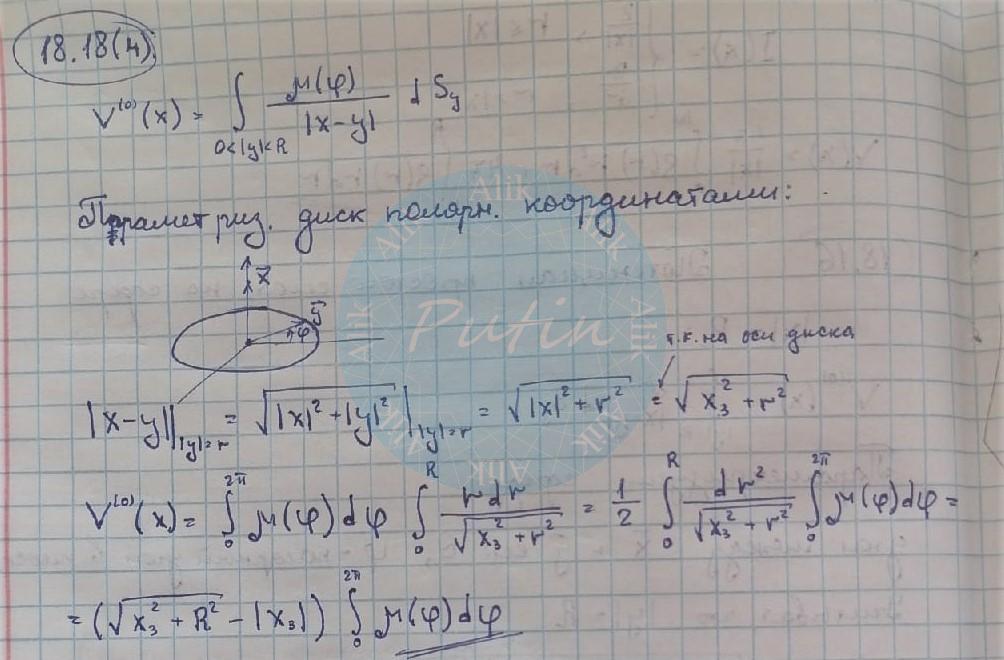 18.18(4)
V⁽⁰⁾(x) = ∫_{0<|y|<R} μ(φ) / |x-y| dS_y
Параметриз. диск полярн. координатами:
x⃗
y⃗
φ
т.к. на оси диска
|x-y| |_{|y|=r} = √(|x|² + |y|²) |_{|y|=r} = √(|x|² + r²) = √(x₃² + r²)
V⁽⁰⁾(x) = ∫₀^{2π} μ(φ) dφ ∫₀^R r dr / √(x₃² + r²) = 1/2 ∫₀^R dr² / √(x₃² + r²) ∫₀^{2π} μ(φ) dφ =
= (√(x₃² + R²) - |x₃|) ∫₀^{2π} μ(φ) dφ
Alik
Alik
Alik
Alik
Alik
Alik
Alik
Alik
Putin